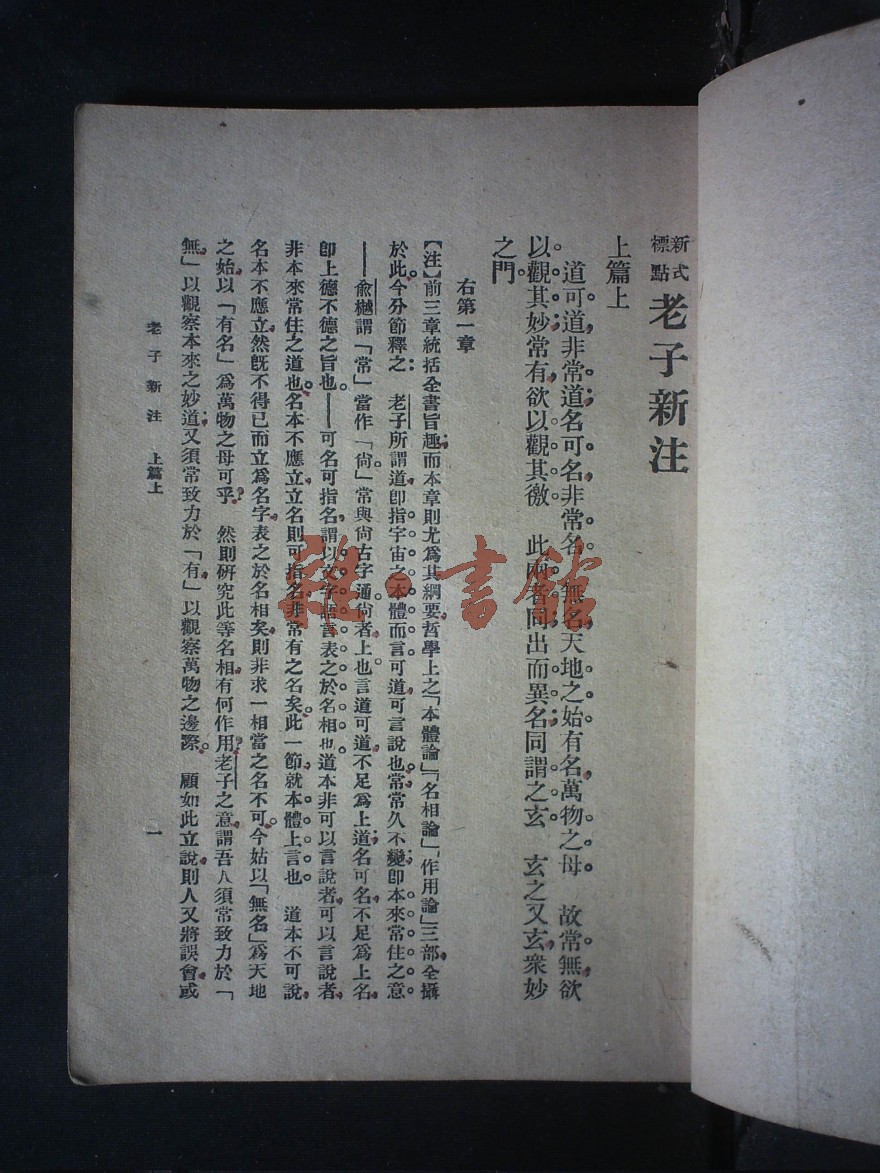 新式標點 老子新注
上篇上
道可道,非常道;名可名,非常名。無名,天地之始;有名,萬物之母。故常無,欲
以觀其妙;常有,欲以觀其徼。此兩者同出而異名,同謂之玄。玄之又玄,衆妙
之門。
右第一章
【注】前三章統括全書旨趣;而本章則尤爲其綱要,哲學上之「本體論」「名相論」「作用論」三部,全攝
於此。今分節釋之:老子所謂道,卽指宇宙之本體而言,可道,可言說也。常,常久不變;卽本來常住之意。
——俞樾謂「常」當作「尙」。常與尙古字通。尙者,上也。言道可道,不足爲上道;名可名,不足爲上名,
卽上德不德之旨也。——可名,可指名,謂以文字語言表之於名相也。道本非可以言說者,可以言說者,
非本來常住之道也。名本不應立,立名則可指名,非常有之名矣。此一節就本體上言也。道本不可說,
名本不應立,然旣不得已而立爲名字,表之於名相矣,則非求一相當之名不可。今姑以「無名」爲天地
之始,以「有名」爲萬物之母可乎?然則研究此等名相,有何作用?老子之意,謂吾人須常致力於「
無」以觀察本來之妙道;又須常致力於「有」以觀察萬物之邊際。顧如此立說,則人又將誤會,或
老子新注 上篇上
一
雜·書館